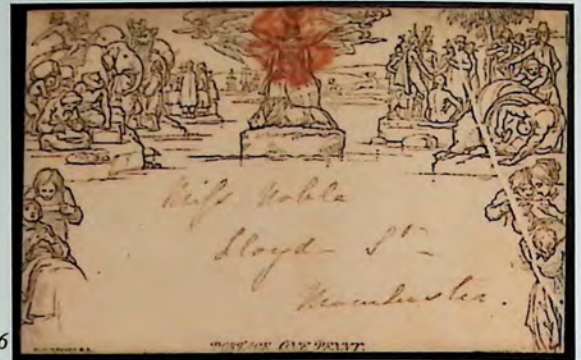 Miss Noble
Lloyd St
Manchester.
POSTAGE ONE PENNY.
6